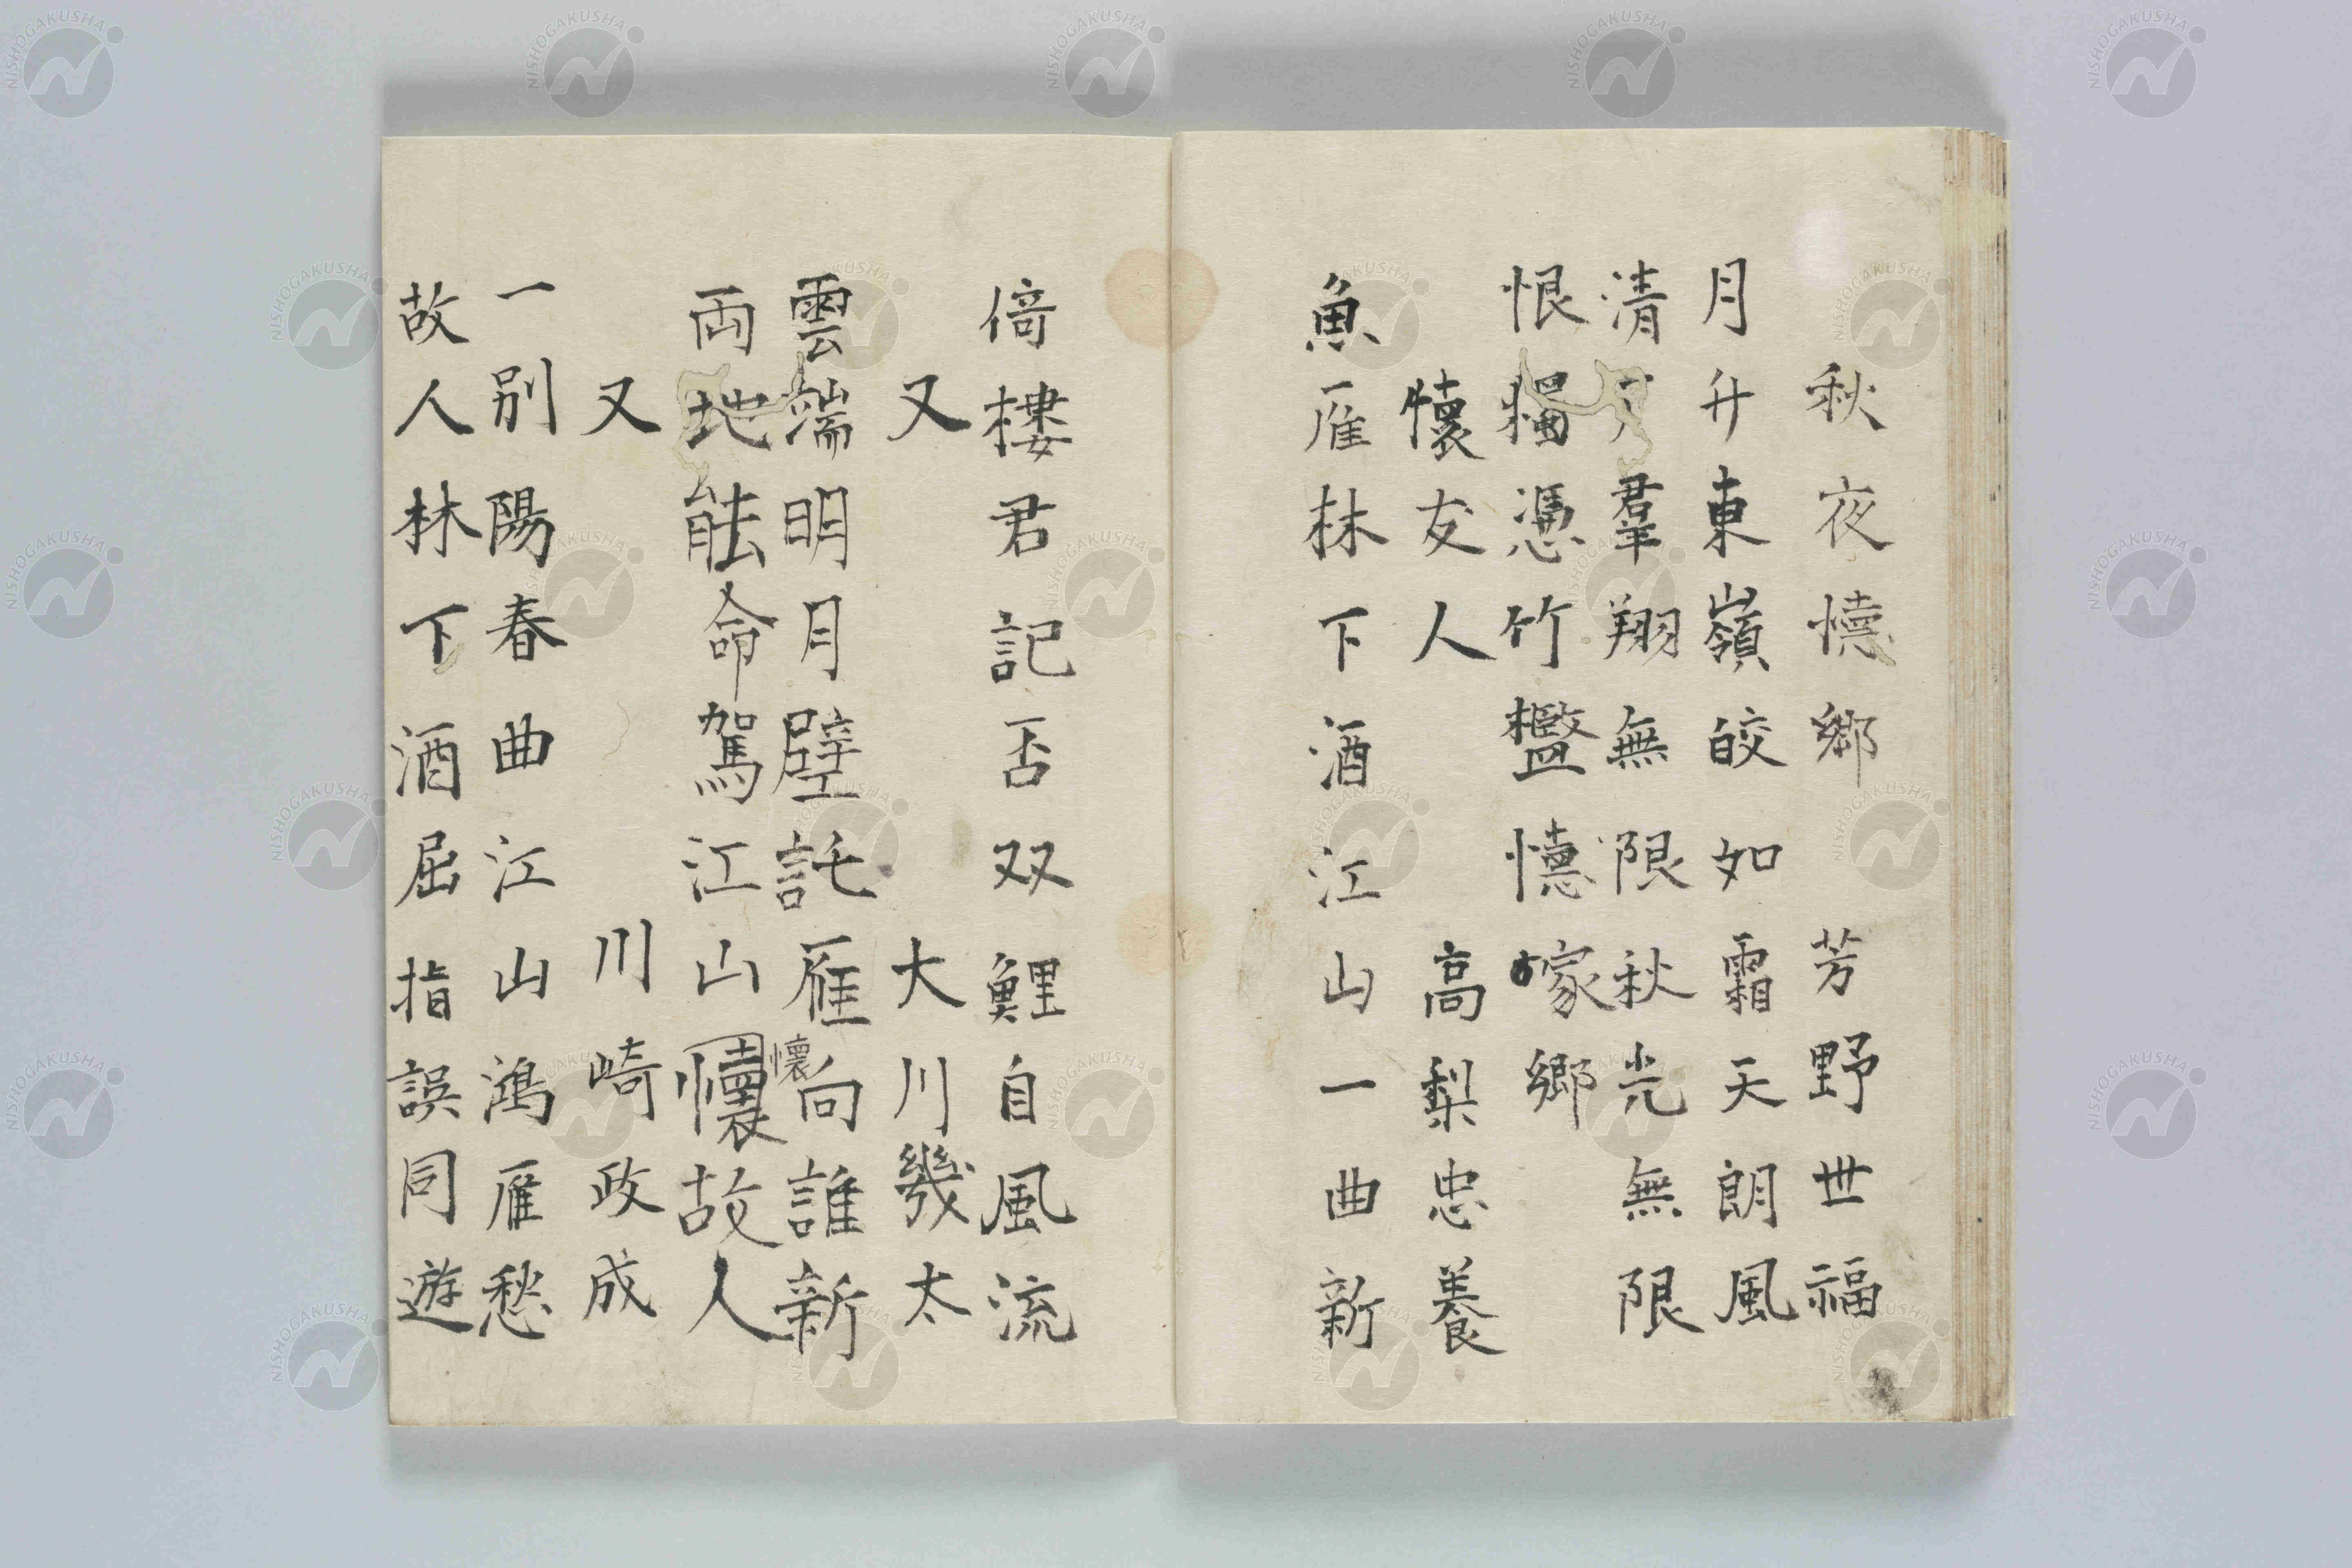 秋夜憶鄉 芳野世福
月升東嶺皎如霜天朗風
清羣翔無限秋光無限
恨獨憑竹檻憶家鄉
懷友人 高梨忠養
魚雁林下酒江山一曲新
倚樓君記否双鯉自風流
又 大川幾太
雲端明月壁託雁向誰新
両地能命駕江山懷故人
懷
又 川崎政成
一别陽春曲江山鴻雁愁
故人林下酒屈指誤同遊
NISHOGAKUSHA